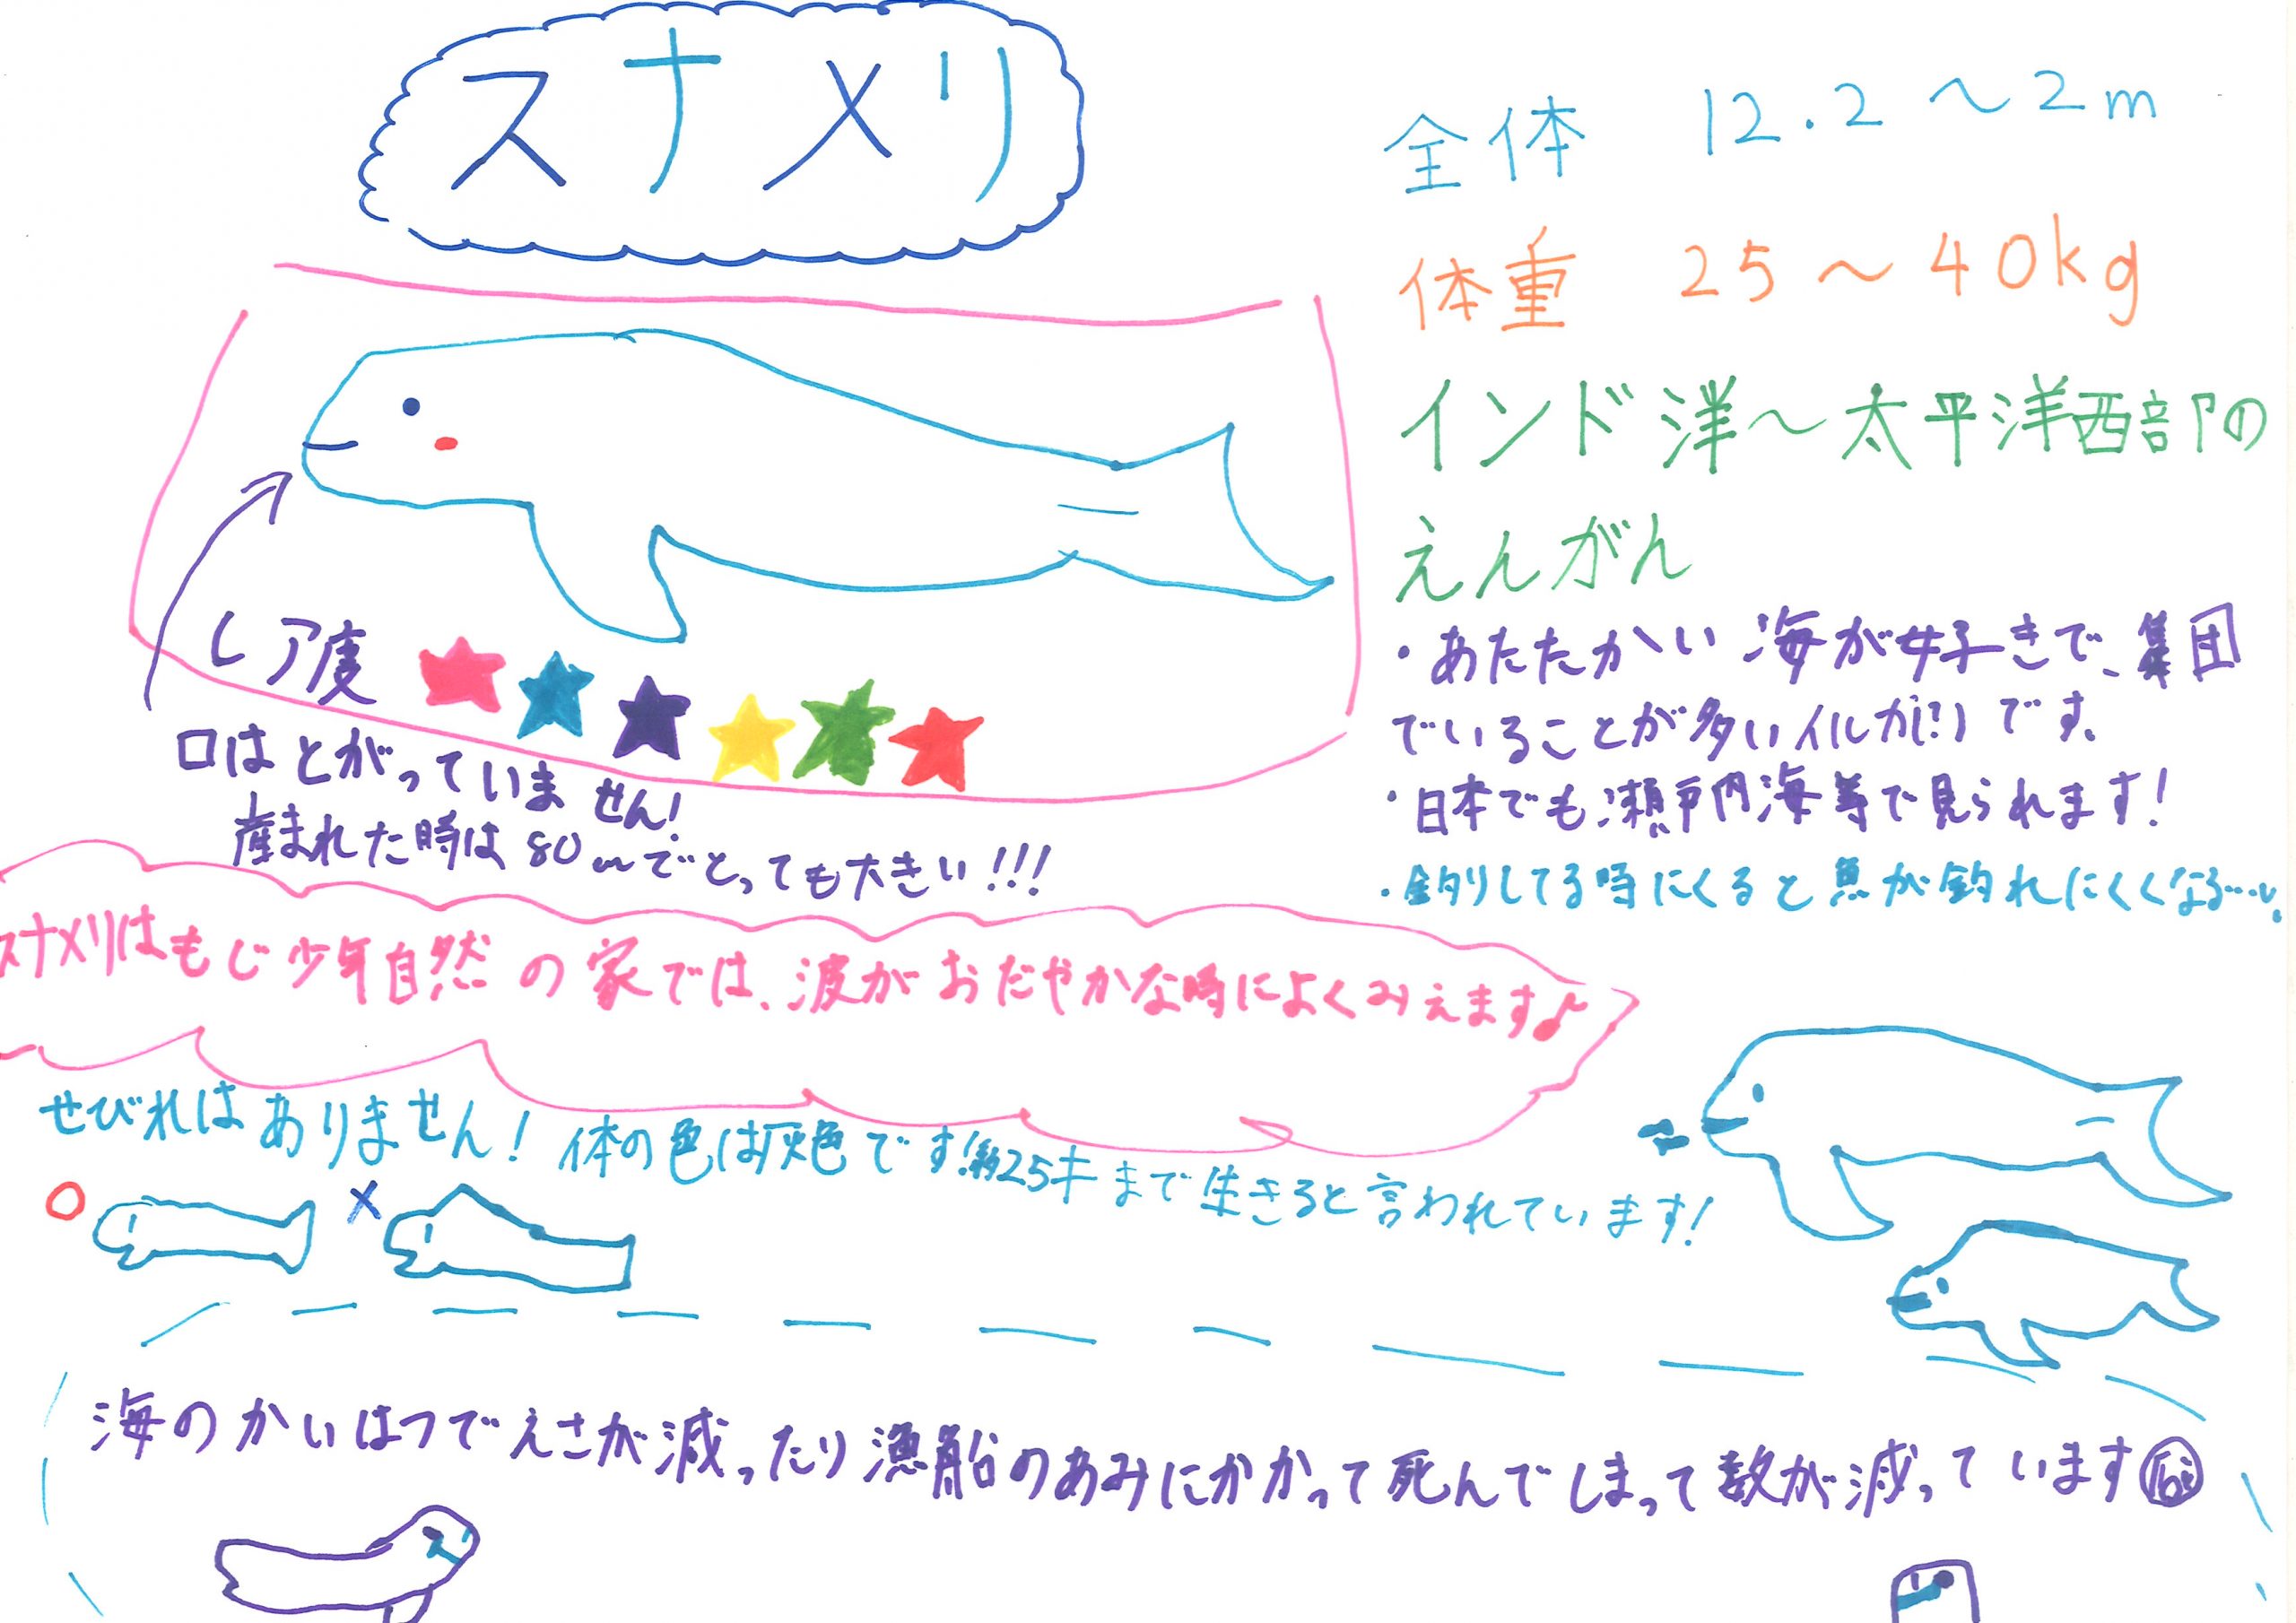 スナメリ
全体 12.2～2m
体重 25～40kg
インド洋～太平洋西部の
えんがん
・あたたかい海が好きで、集団
でいることが多いイルカ(?)です。
・日本でも瀬戸内海等で見られます!
・釣りしてる時にくると魚が釣れにくくなる…。
レア度
口はとがっていません!
産まれた時は80cmでとっても大きい!!!
スナメリはもじ少年自然の家では、波がおだやかな時によくみえます♪
せびれはありません! 体の色は灰色です!約25才まで生きると言われています!
○ ×
海のかいはつでえさが減ったり漁船のあみにかかって死んでしまって数が減っています